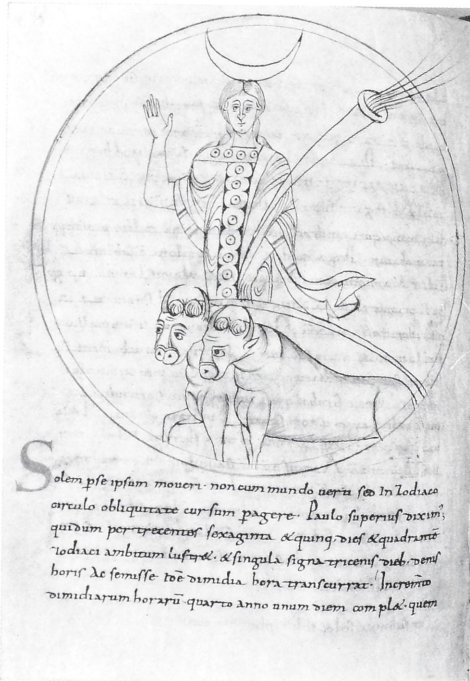 Solem pse ipsum moveri. non cum mundo verti sed In Zodiaco
circulo obliquitate cursum pagere. Paulo superius diximꝰ
quidum per trecentos sexaginta & quinq dies & quadrante
Zodiaci ambitum lustr&. & singula signa tricenis dieb. denis
horis Ac semisse idē dimidia hora transcurrat. Incremto
dimidiarum horarū quarto anno unum diem compl&. quem